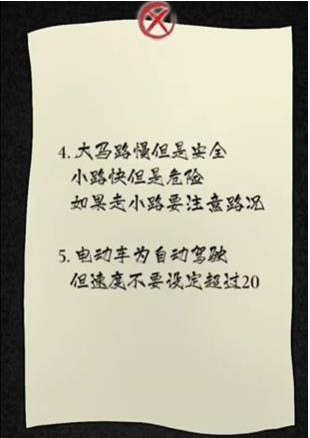 4. 大马路慢但是安全
小路快但是危险
如果走小路要注意路况
5. 电动车为自动驾驶
但速度不要设定超过20